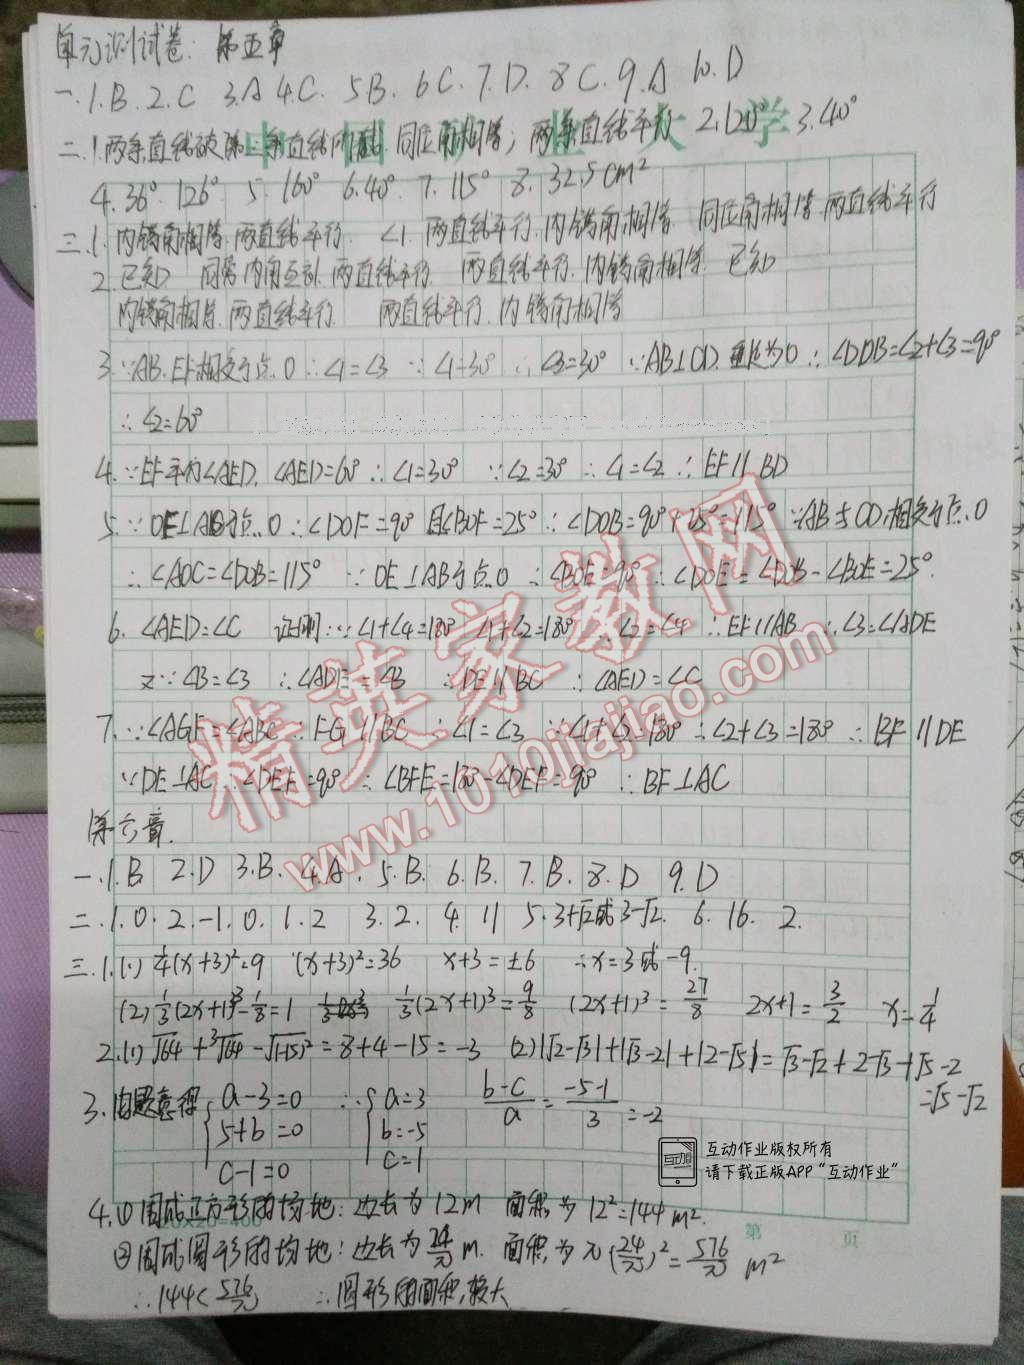 单元测试卷:第五章
一.1.B.2.C 3.A 4.C. 5B. 6C. 7.D. 8C. 9.A 10.D
二.1.两条直线被第三条直线所截.同位角相等;两条直线平行 2.120° 3.40°
4.36° 126° 5.160° 6.40° 7.115° 8.32.5cm²
三.1.内错角相等.两直线平行. ∠1. 两直线平行.内错角相等. 同位角相等.两直线平行
2.已知 同旁内角互补.两直线平行 两直线平行.内错角相等. 已知
内错角相等.两直线平行. 两直线平行.内错角相等
3.∵AB.EF相交于点O ∴∠1=∠3 ∵∠1=30° ∴∠3=30° ∵AB⊥CD.垂足为O ∴∠DOB=∠2+∠3=90°
∴∠2=60°
4.∵EF平分∠AED.∠AED=60° ∴∠1=30° ∵∠2=30° ∴∠1=∠2 ∴EF∥BD
5.∵OE⊥AB于点O ∴∠DOF=90° 且∠BOF=25° ∴∠DOB=90°+25°=115° ∵AB与CD相交于点O
∴∠AOC=∠DOB=115° ∵OE⊥AB于点O ∴∠BOE=90° ∴∠DOE=∠DOB-∠BOE=25°.
6.∠AED=∠C 证明:∵∠1+∠4=180° ∠1+∠2=180° ∴∠2=∠4 ∴EF∥AB ∴∠3=∠ADE
又∵∠B=∠3 ∴∠ADE=∠B ∴DE∥BC ∴∠AED=∠C
7.∵∠AGF=∠ABC ∴FG∥BC ∴∠1=∠3 ∵∠1+∠2=180° ∴∠2+∠3=180° ∴BF∥DE
∵DE⊥AC ∴∠DEF=90° ∴∠BFE=180°-∠DEF=90° ∴BF⊥AC
第六章.
一.1.B 2.D 3.B. 4.A. 5.B. 6.B. 7.B. 8.D 9.D
二.1.0.2.-1.0.1.2 3.2. 4.11 5.3+√2或3-√2. 6.16. 2.
三.1.(1) 1/4(x+3)²=9 (x+3)²=36 x+3=±6 ∴x=3或-9.
(2)1/3(2x+1)³-1/8=1 1/3(2x+1)³=9/8 (2x+1)³=27/8 2x+1=3/2 x=1/4
2.(1)√64+³√64-√(-15)²=8+4-15=-3 (2)|√2-√3|+|√3-2|+|2-√5|=√3-√2+2-√3+√5-2
=√5-√2
3.由题意得 a-3=0 ∴ a=3 (b-c)/a=(-5-1)/3=-2
5+b=0 b=-5
c-1=0 c=1
互动作业版权所有
请下载正版APP“互动作业”
4.①围成正方形的场地:边长为12m 面积为12²=144m².
20×20=400 第 页
②围成圆形的场地:边长为24/π m. 面积为π(24/π)²=576/π m²
∴144<576/π ∴圆形的面积较大
精英家教网
www.1010jiajiao.com